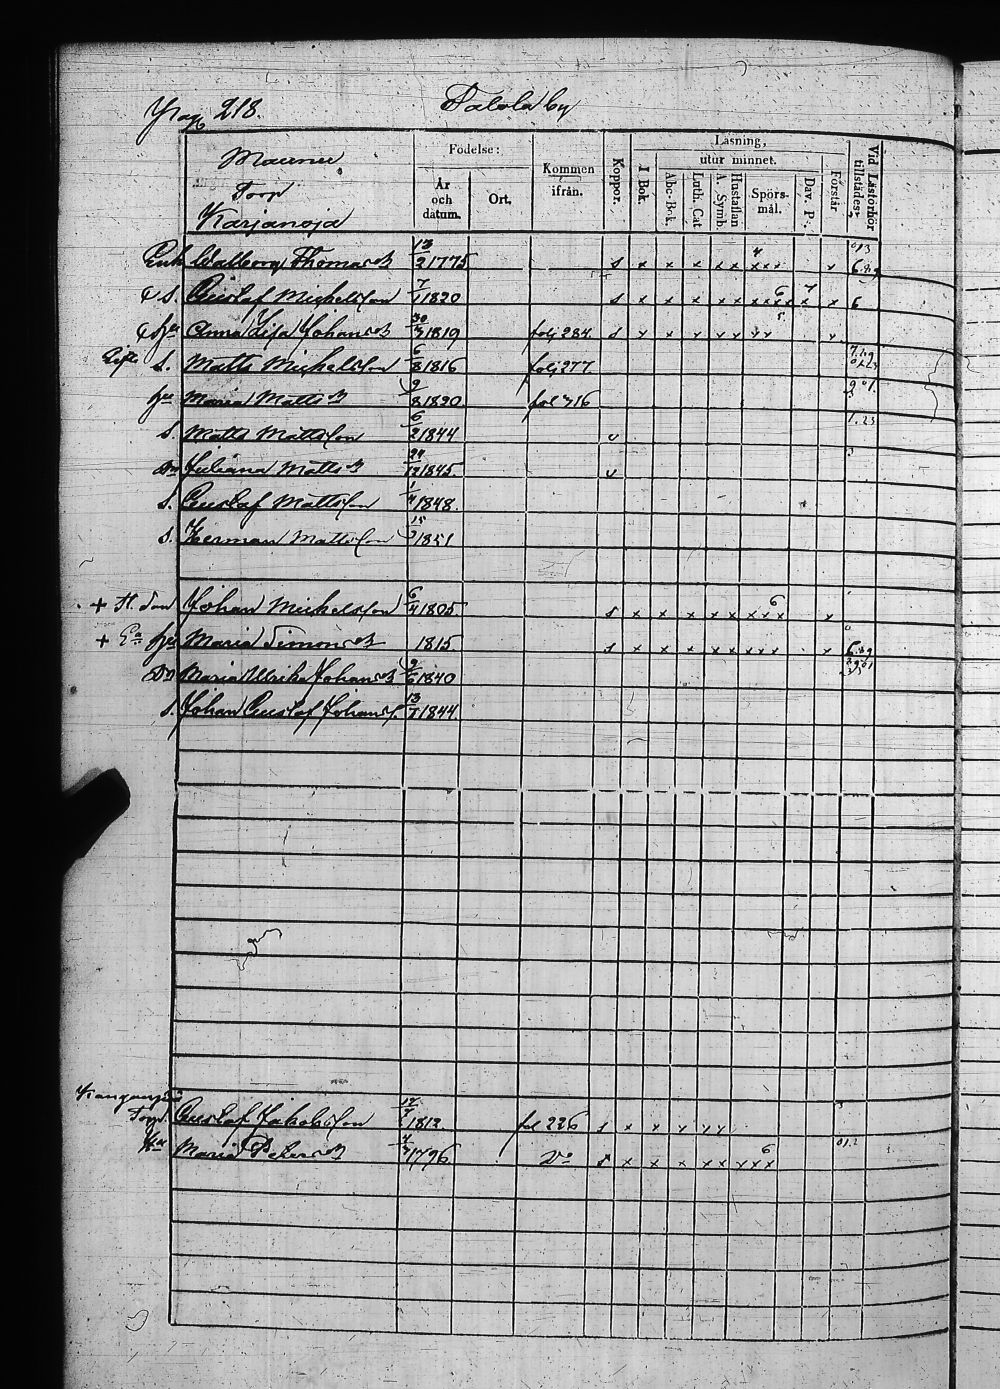 Pag 218. Talola by
Maunu
Torp
Karjanoja
Födelse:
År och datum.
Ort.
Kommen ifrån.
Koppor.
Läsning,
utur minnet.
I Bok.
Abc-Bok.
Luth. Cat
A. Symb.
Hustaflan
Spörs-mål.
Dav. Ps.
Förstår
Vid Läsförhör tillstädes.
Enk. Walborg Thomasdr 13/2 1775 s x x x x x x x x x
S. Gustaf Michelsson 7/1 1820 s x x x x x x x x x x x 6
hu Anna Lisa Johansdr 30/3 1819 fol. 284. s x x x x x x x x
Gift S. Matts Michelsson 6/8 1816 fol. 277.
hu Maria Mattsdr 9/8 1820 fol 316
S. Matts Mattsson 6/2 1844 v
Dr Juliana Mattsdr 24/12 1845. v
S. Gustaf Mattsson 1/4 1848.
S. Herman Mattsson 15/ 1851
+ Johan Michelsson 6/4 1805 s x x x x x x x x x
+ hu Maria Simonsdr 1815 s x x x x x x x x x
Dr Maria Ulrika Johansdr 9/5 1840
S. Johan Gustaf Johanss. 13/1 1844.
Torp. Gustaf Jakobsson 17/7 1812 fol 226 s x x x x x
Hu Maria Petersdr 4/3 1796 Do s x x x x x x x x